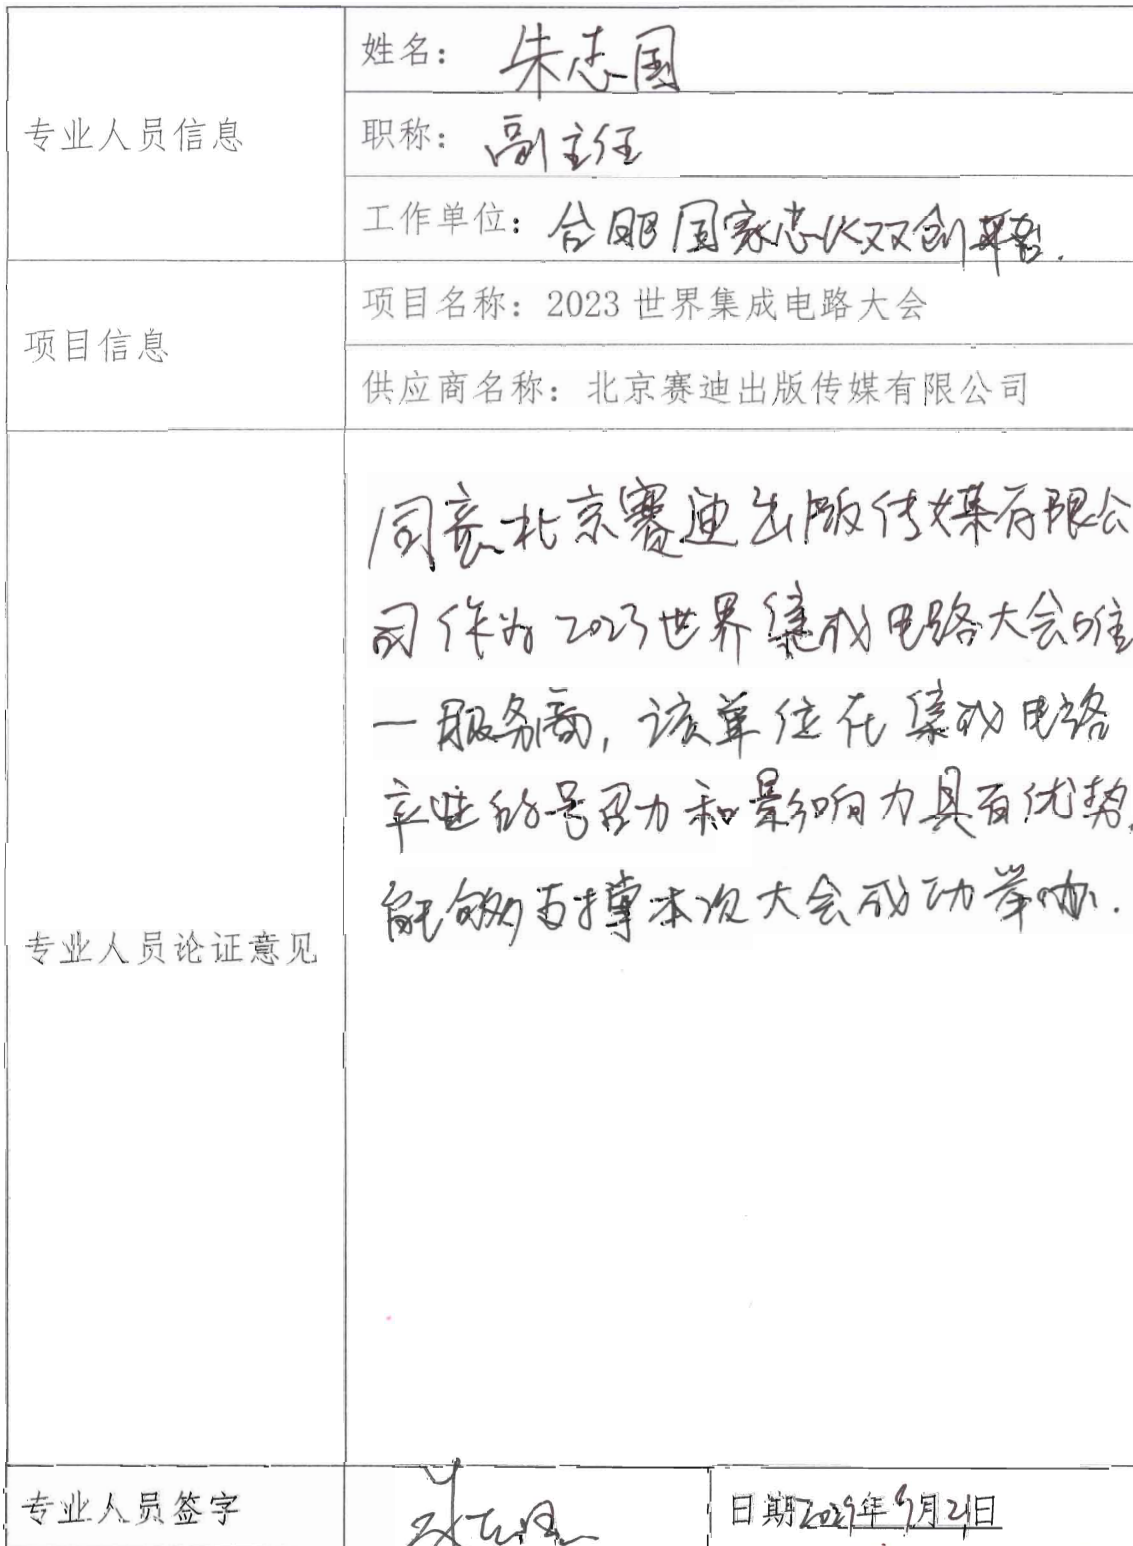 专业人员信息
姓名： 朱志国
职称： 副主任
工作单位： 合肥国家芯火双创平台.
项目信息
项目名称：2023 世界集成电路大会
供应商名称：北京赛迪出版传媒有限公司
专业人员论证意见
同意北京赛迪出版传媒有限公
司作为2023世界集成电路大会的唯
一服务商, 该单位在集成电路
产业的号召力和影响力具有优势,
能够支撑本次大会成功举办.
专业人员签字
朱志国
日期 年9月21日